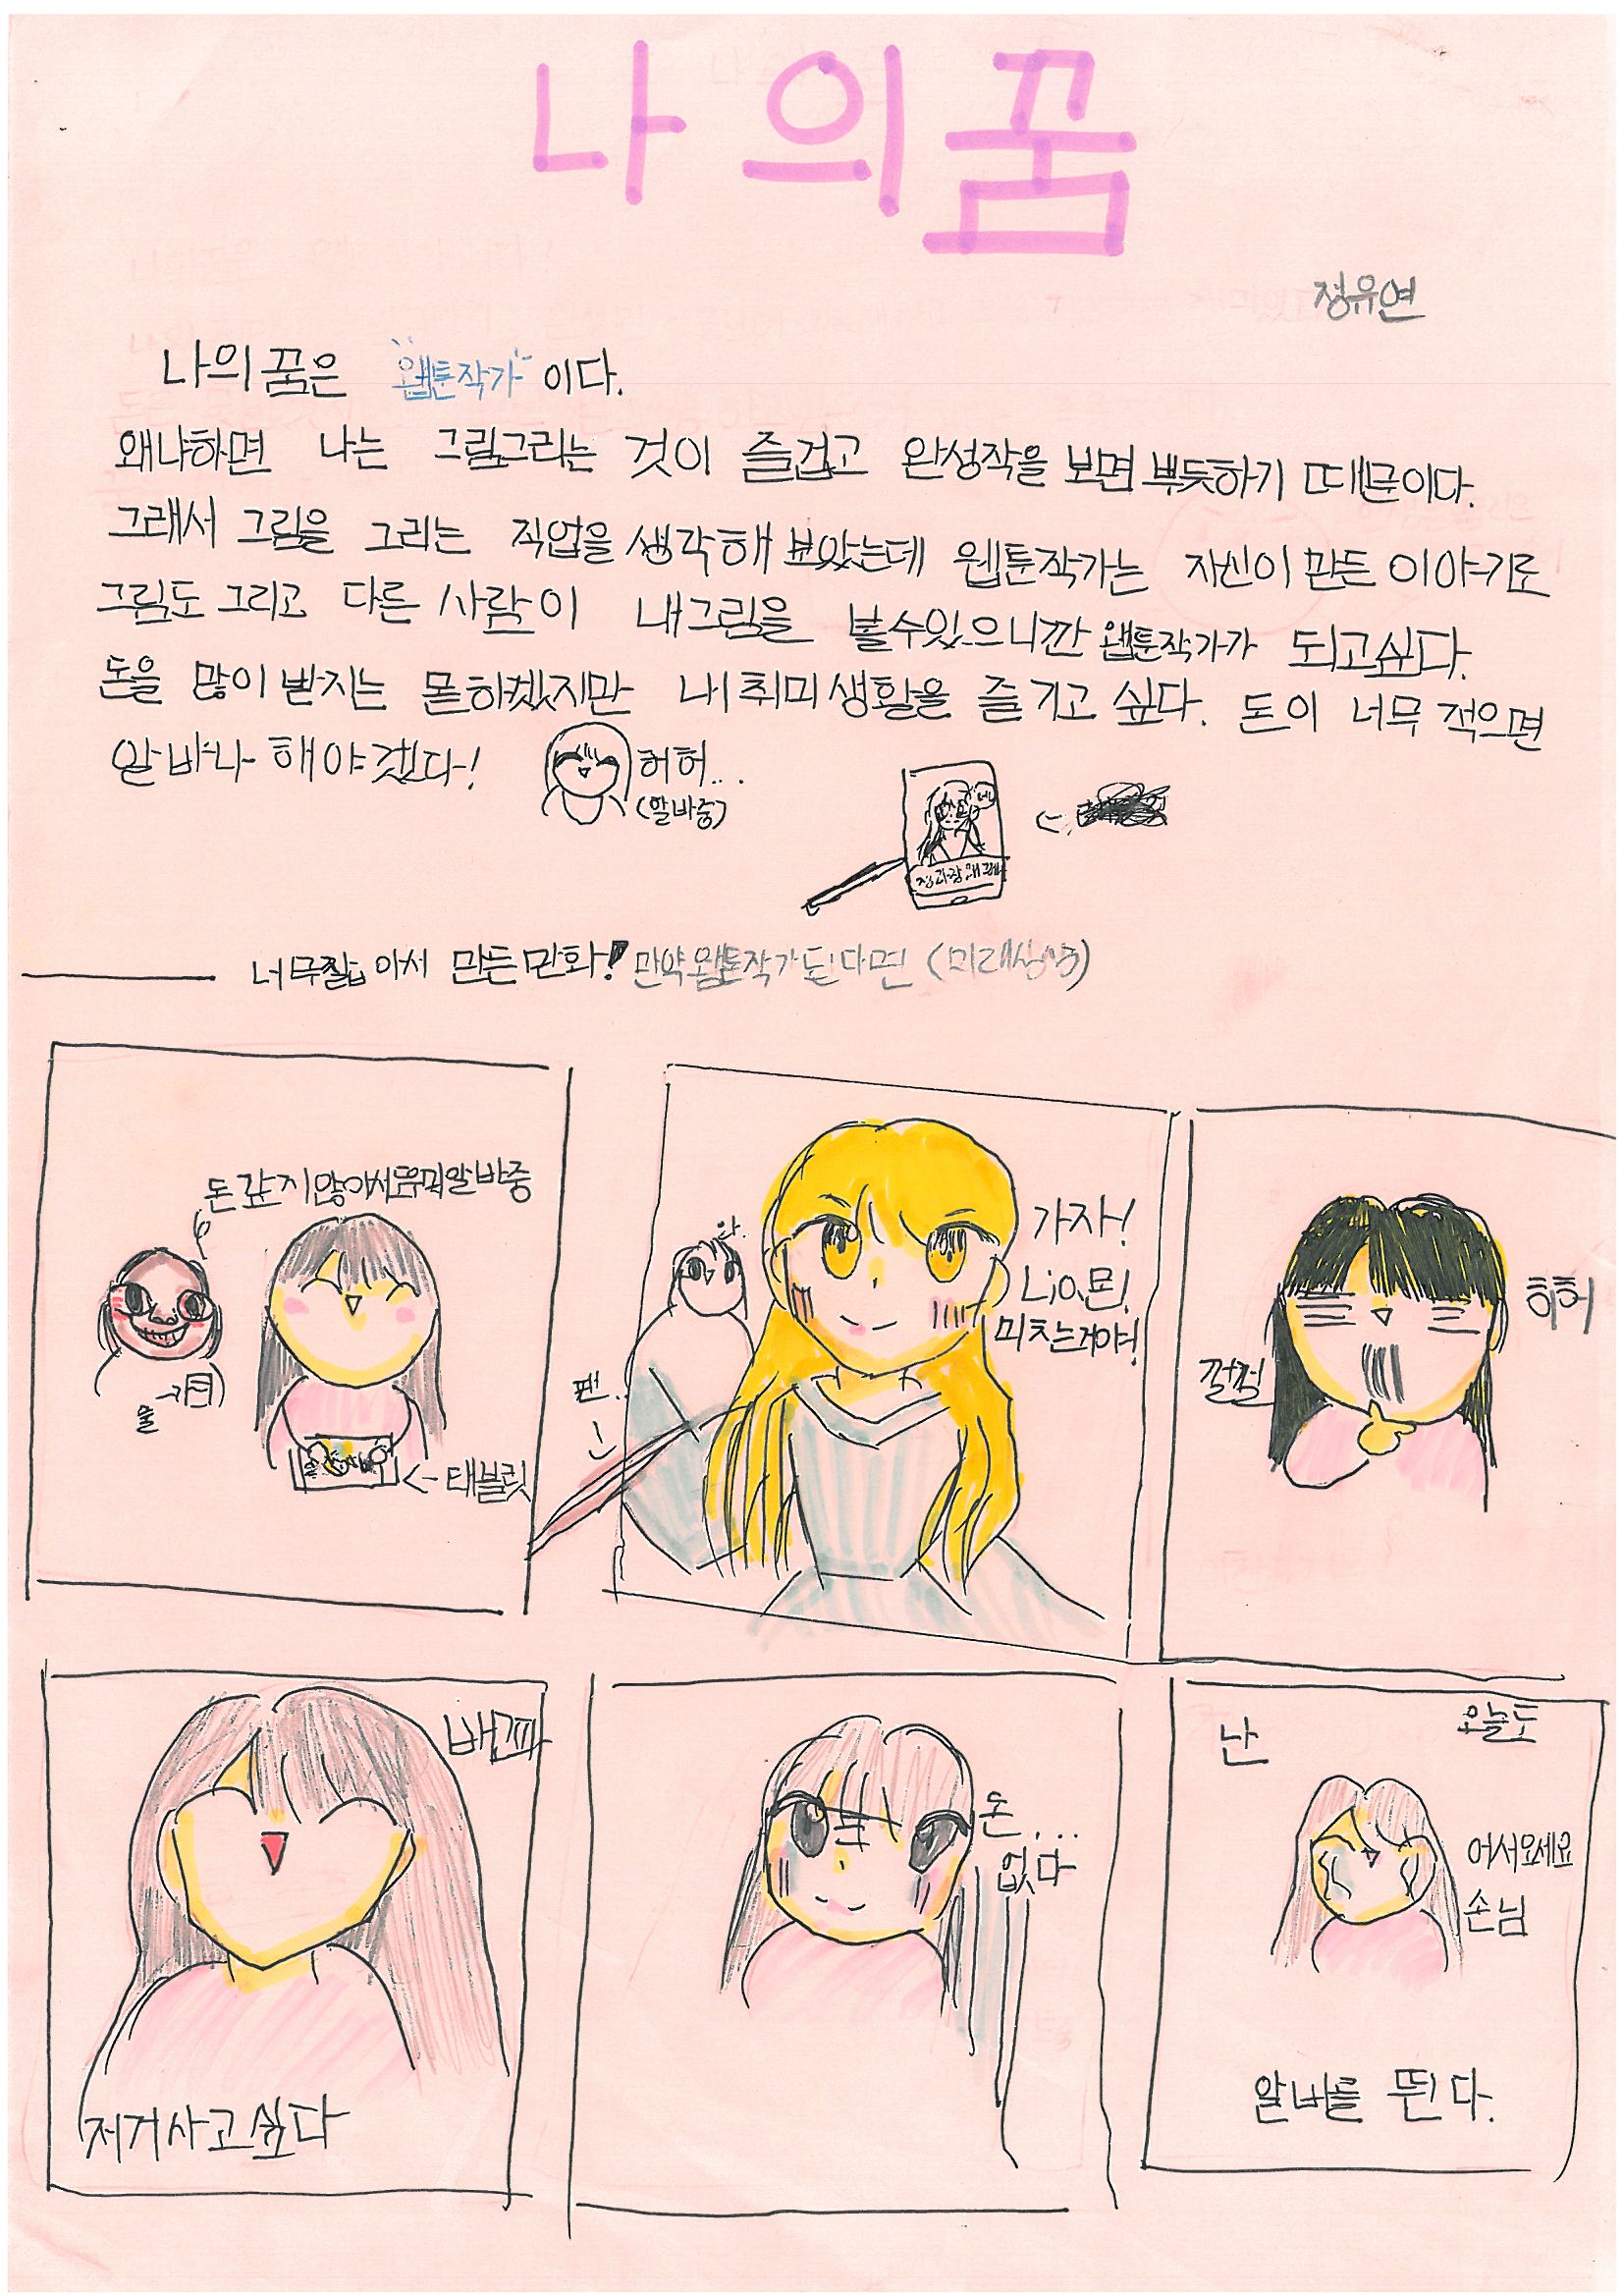 나의꿈
정유연
나의 꿈은 "웹툰작가" 이다.
왜냐하면 나는 그림그리는 것이 즐겁고 완성작을 보면 뿌듯하기 때문이다.
그래서 그림을 그리는 직업을 생각해 보았는데 웹툰작가는 자신이 만든 이야기로
그림도 그리고 다른 사람이 내그림을 볼수있으니깐 웹툰작가가 되고싶다.
돈을 많이 받지는 못하겠지만 내 취미생활을 즐기고 싶다. 돈이 너무 적으면
알바나 해야겠다!
허허...
(알바중)
너무짧아서 만든만화! 만약웹툰작가가된다면 (미래상상)
알바중
태블릿
앗.
가자!
미치는게야!
펜..
허허
껄껄
배고파
저거사고싶다
돈...
없다
난
오늘도
어서오세요
손님
알바를 뛴다.